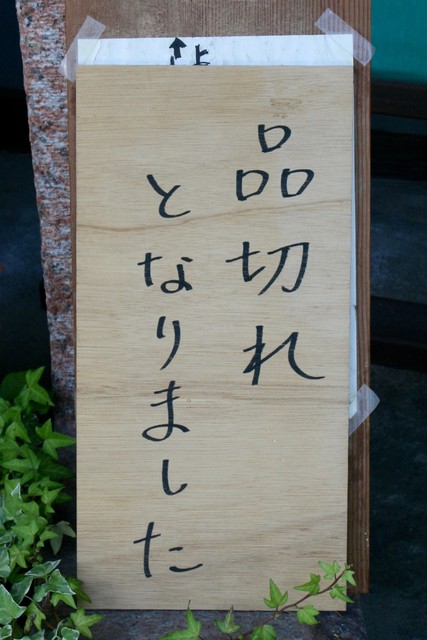 品切れ
となりました